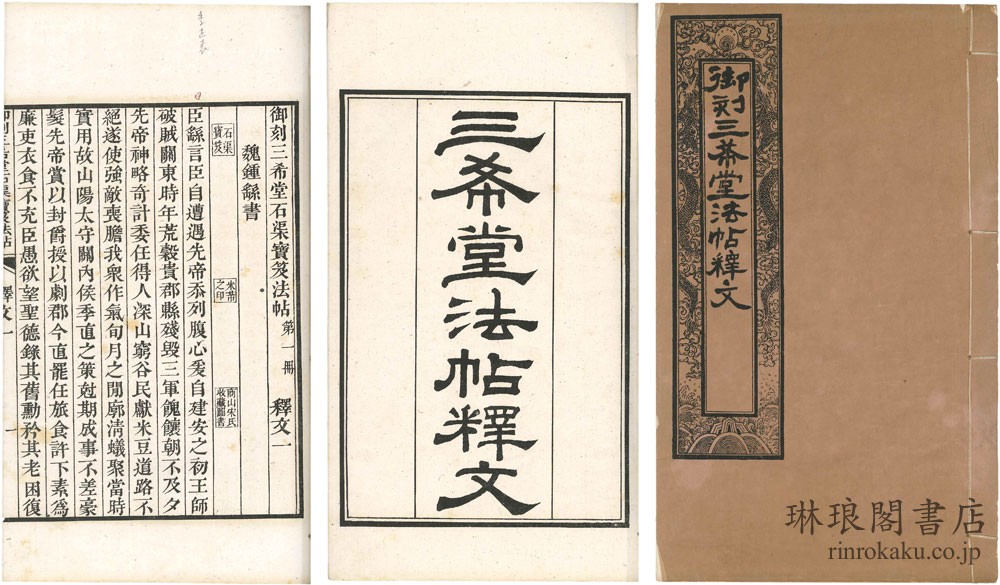 御刻三希堂法帖釋文
三希堂法帖釋文
御刻三希堂石渠寶笈法帖 第一冊 釋文一
魏鍾繇書
石渠寶笈
米芾之印
商山宋氏收藏圖書
臣繇言臣自遭遇先帝忝列腹心爰自建安之初王師
破賊關東時年荒穀貴郡縣殘毀三軍餽饟朝不及夕
先帝神略奇計委任得人深山窮谷民獻米豆道路不
絕遂使強敵喪膽我衆作氣旬月之閒廓清蟻聚當時
實用故山陽太守關內侯季直之策尅期成事不差豪
髮先帝賞以封爵授以劇郡今直罷任旅食許下素爲
廉吏衣食不充臣愚欲望聖德錄其舊勳矜其老困復
季直表
琳琅閣書店
rinrokaku.co.jp